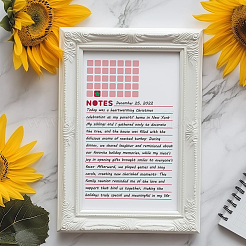 NOTES December 25, 2022
Today was a heartwarming Christmas
celebration at my parents' home in New York
My siblings and I gathered early to decorate
the tree, and the house was filled with the
delicious aroma of roasted turkey. During
dinner, we shared laughter and reminisced about
our favorite holiday memories, while my niece's
joy in opening gifts brought smiles to everyone's
faces. Afterward, we played games and sang
carols, creating new cherished moments. This
family reunion reminded me of the love and
support that bind us together, making the
holidays truly special and meaningful in my life